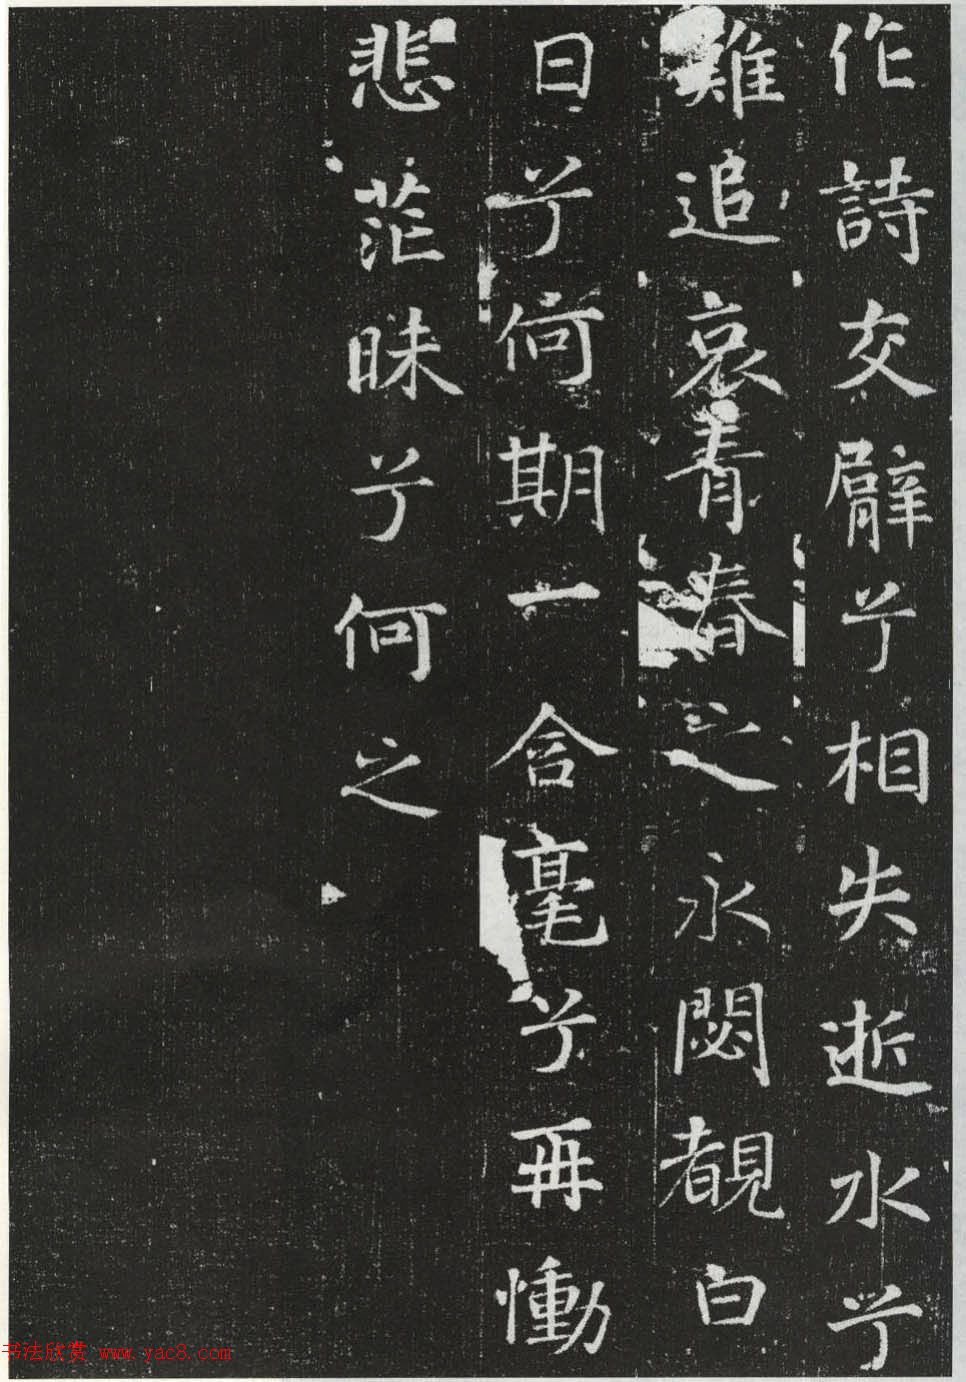 作詩交臂兮相失逝水兮
難追哀青春之永閟覩白
日兮何期一含毫兮再慟
悲茫昧兮何之
书法欣赏 www.yac8.com